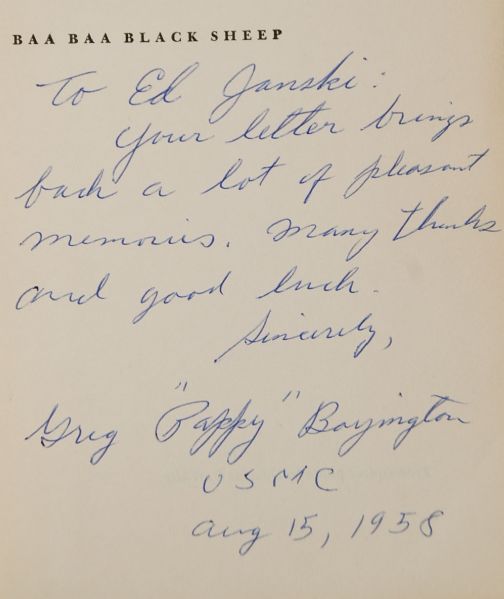 BAA BAA BLACK SHEEP
To Ed Janski:
Your letter brings
back a lot of pleasant
memories. Many thanks
and good luck.
Sincerely,
Greg "Pappy" Boyington
USMC
Aug 15, 1958